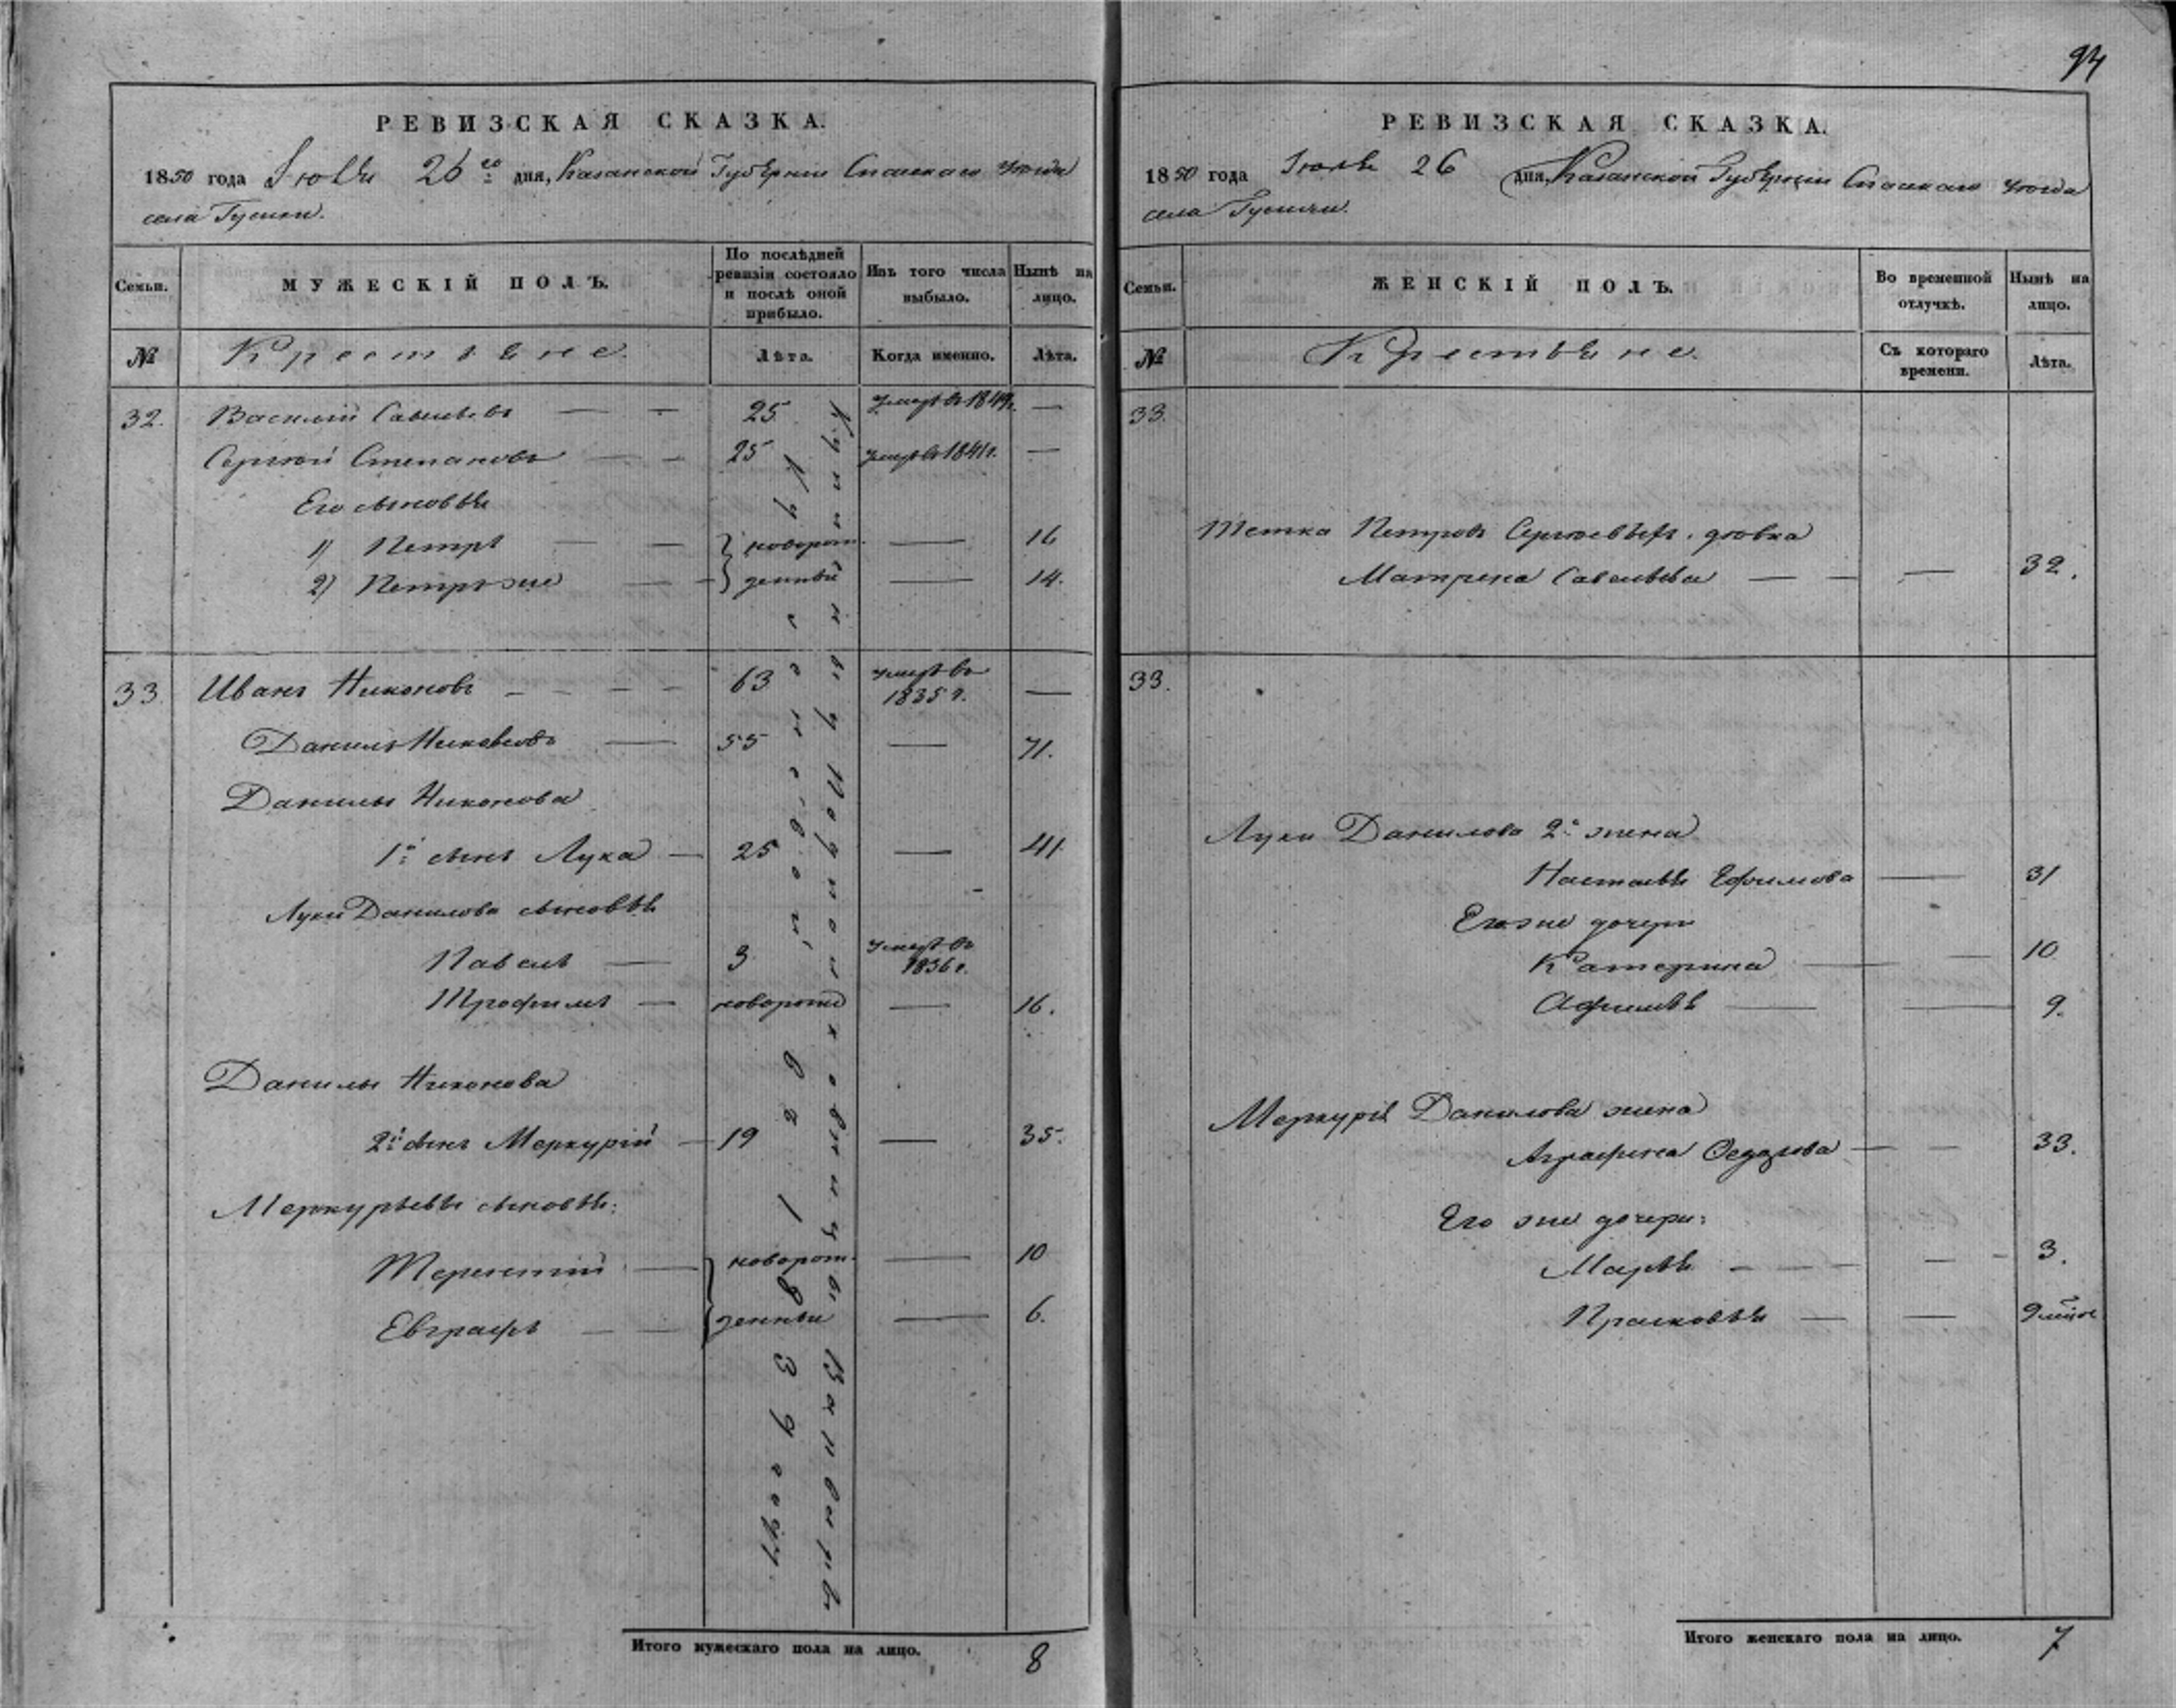 94
РЕВИЗСКАЯ СКАЗКА.
1850 года Іюля 26го дня, Казанской Губерніи Спаскаго уѣзда
села Гусихи.
Семьи.
МУЖЕСКІЙ ПОЛЪ.
По послѣдней ревизіи состояло и послѣ оной прибыло.
Изъ того числа выбыло.
Нынѣ на лицо.
№
Крестьяне.
Лѣта.
Когда именно.
Лѣта.
32. Василій Савельевъ — - 25 умеръ въ 1849г. —
Сергѣй Степановъ — - 25 умеръ въ 1841г. —
Его сыновья
1) Петръ — — новорож. — 16
2) Петръ же — — денный — 14.
33 Иванъ Никоновъ - - - - 63 умеръ въ 1835 г. —
Данилъ Никоновъ — 55 — 71.
Данилы Никонова
1й сынъ Лука — 25 — 41
Луки Данилова сыновья
Павелъ — 3 умеръ въ 1836 г.
Трофимъ — новорожд — 16.
Данилы Никонова
2й сынъ Меркурій — 19 — 35.
Меркурьевы сыновья:
Терентій — новорож. — 10
Евграфъ — — денные — 6.
Итого мужескаго пола на лицо. 8
РЕВИЗСКАЯ СКАЗКА.
1850 года Іюля 26 дня, Казанской Губерніи Спаскаго уѣзда
села Гусихи.
Семьи.
ЖЕНСКІЙ ПОЛЪ.
Во временной отлучкѣ.
Нынѣ на лицо.
№
Крестьяне.
Съ котораго времени.
Лѣта.
33.
Тетка Петровъ Сергѣевыхъ. дѣвка
Матрена Савельева — — — 32.
33.
Луки Данилова 2я жена
Настасья Ефимова — 31
Его же дочери
Катерина — — 10
Афимья — — 9.
Меркурія Данилова жена
Аграфена Федорова — — 33.
Его же дочери:
Марья - — — - 3.
Прасковья — — 9 мѣся
Итого женскаго пола на лицо. 7